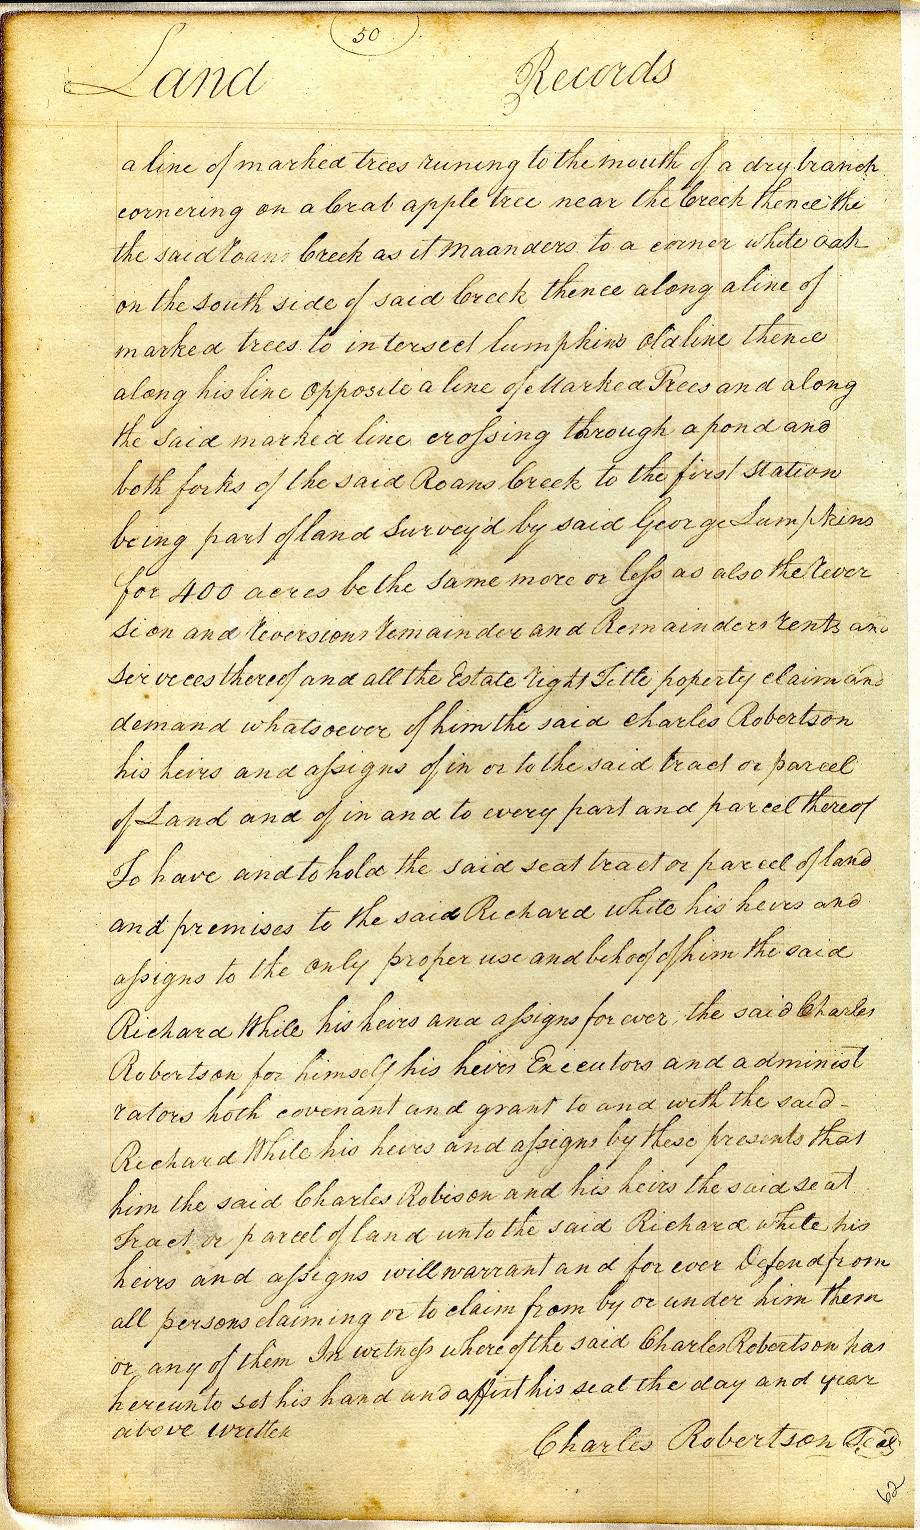 50
Land Records
a line of marked trees runing to the mouth of a dry branch
cornering on a Crab apple tree near the Creek thence the
the said Roans Creek as it Maanders to a corner white oak
on the South side of said Creek thence along a line of
marked trees to intersect lumpkins old line thence
along his line opposite a line of Marked Trees and along
the said marked line crossing through a pond and
both forks of the said Roans Creek to the first station
being part of land Survey'd by said George Lumpkins
for 400 acres be the same more or less as also the rever
sion and reversions remainder and Remainders rents and
serveces thereof and all the Estate right Title poperty claim and
demand whatsoever of him the said Charles Robertson
his heirs and assigns of in or to the said tract or parcel
of Land and of in and to every part and parcel thereof
To have and to hold the said seat tract or parcel of land
and premises to the said Richard white his heirs and
assigns to the only proper use and behoof of him the said
Richard White his heirs and assigns for ever, the said Charles
Robertson for himself his heirs Executors and administ
rators hoth covenant and grant to and with the said -
Richard White his heirs and assigns by these presents that
him the said Charles Robison and his heirs the said seat
Tract or parcel of land unto the said Richard white his
heirs and assigns will warrant and for ever Defend from
all persons claiming or to claim from by or under him them
or any of them In witness where of the said Charles Robertson has
hereunto set his hand and affixt his seal the day and year
above written
Charles Robertson Seal
62